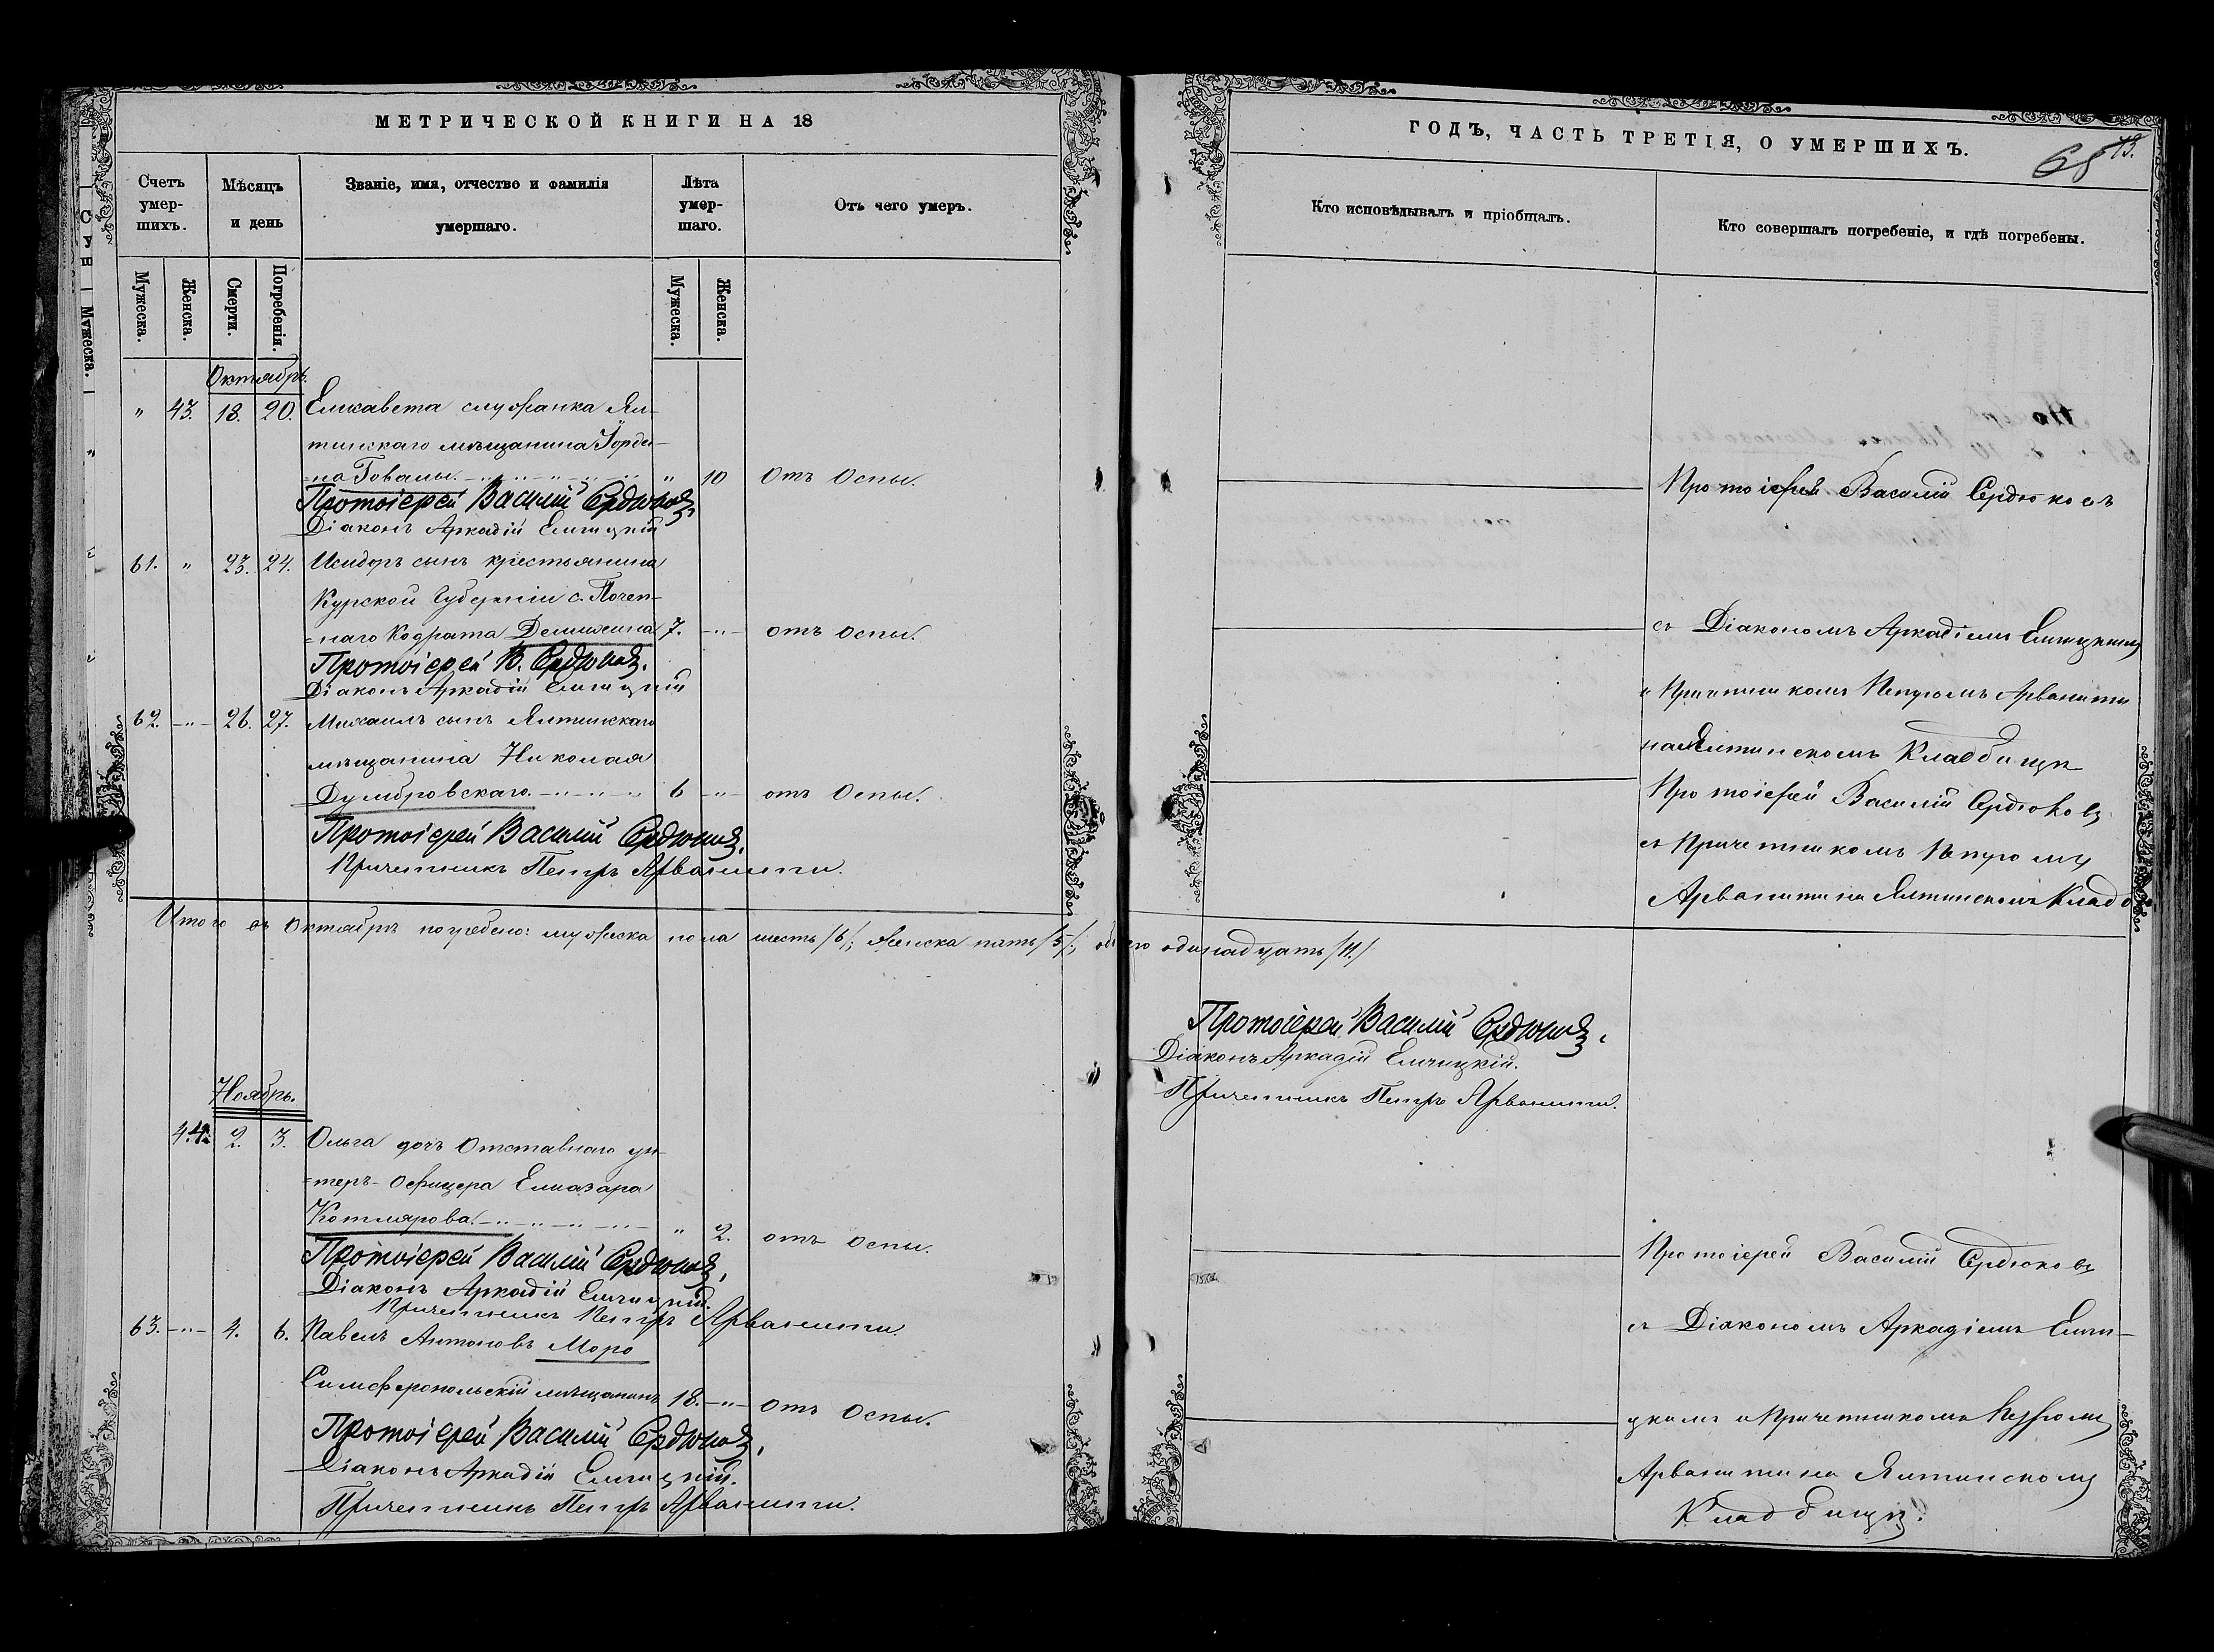 МЕТРИЧЕСКОЙ КНИГИ НА 18
Счетъ умер-шихъ.
Мѣсяцъ и день
Званіе, имя, отчество и фамилія умершаго.
Лѣта умер-шаго.
Отъ чего умеръ.
Мужеска. Женска. Смерти. Погребенія. Мужеска. Женска.
Октябрь.
" 43. 18. 20. Елисавета служанка Ял-
тинскаго мѣщанина Горде-
на Говалы. " 10 Отъ Оспы.
Протоіерей Василій Сердюковъ
Діаконъ Аркадій Елчицкій
61. " 23. 24. Исидоръ сынъ крестьянина
Курской Губерніи с. Почеп-
=наго Кодрата Демихина 7. -"- отъ оспы.
Протоіерей В. Сердюковъ.
Діаконъ Аркадій Елчицкій
62. -"- 26. 27. Михаилъ сынъ Ялтинскаго
мѣщанина Николая
Думбровскаго. 6 -"- отъ Оспы.
Протоіерей Василій Сердюковъ.
Причетникъ Петръ Арванити.
Итого въ Октябрѣ погребено: мужеска пола шесть /6/; женска пять /5/; обоего одинадцать /11./
Ноябрь.
44. 2. 3. Ольга дочь Отставнаго ун-
=теръ-Офицера Елиазара
Котлярова. " 2. отъ оспы.
Протоіерей Василій Сердюковъ,
Діаконъ Аркадій Елчицкій.
Причетникъ Петръ Арванити.
63. -"- 4. 6. Павелъ Антоновъ Моро
Симферопольскій мѣщанинъ 18. -"- отъ Оспы.
Протоіерей Василій Сердюковъ,
Діаконъ Аркадій Елчицкій.
Причетникъ Петръ Арванити.
ГОДЪ, ЧАСТЬ ТРЕТІЯ, О УМЕРШИХЪ.
68 73.
Кто исповѣдывалъ и пріобщалъ.
Кто совершалъ погребеніе, и гдѣ погребены.
Протоіерей Василій Сердюковъ
съ Діакономъ Аркадіемъ Елчицкимъ
и Причетникомъ Петромъ Арванити
на Ялтинскомъ Кладбищѣ
Протоіерей Василій Сердюковъ
съ Причетникомъ Петромъ
Арванити на Ялтинскомъ Кладб
Протоіерей Василій Сердюковъ.
Діаконъ Аркадій Елчицкій.
Причетникъ Петръ Арванити.
Протоіерей Василій Сердюковъ
съ Діакономъ Аркадіемъ Елчи-
цкимъ и Причетникомъ Петромъ
Арванити на Ялтинскомъ
Кладбищѣ.
С у ш Мужеска.